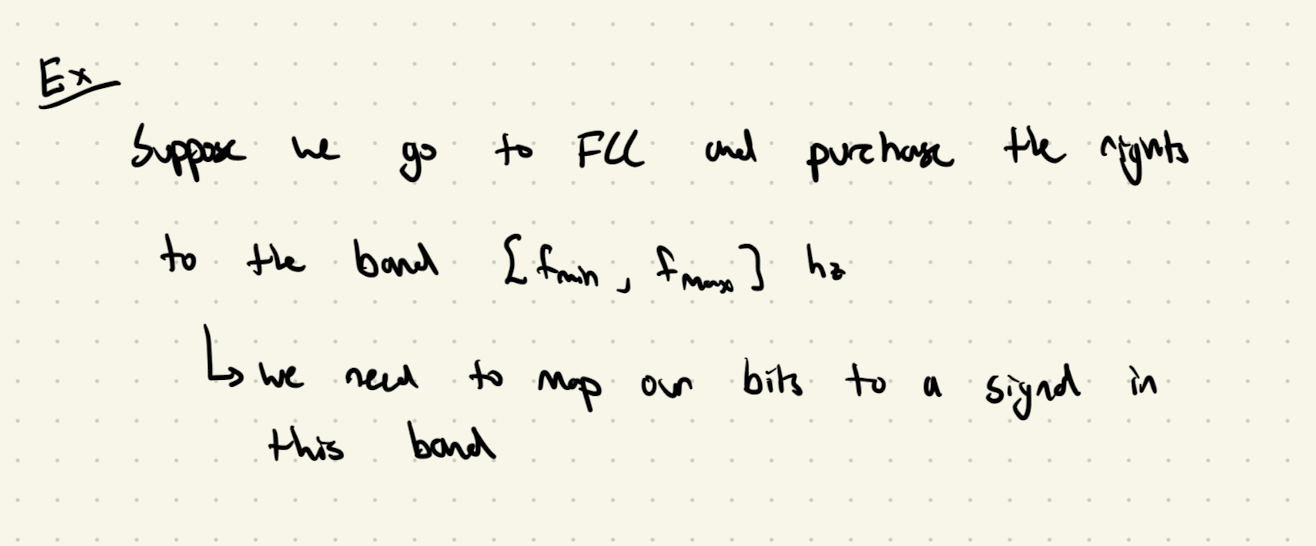 Ex
Suppose we go to FCC and purchase the rights
to the band [fmin, fmax] hz
↳ we need to map our bits to a signal in
this band